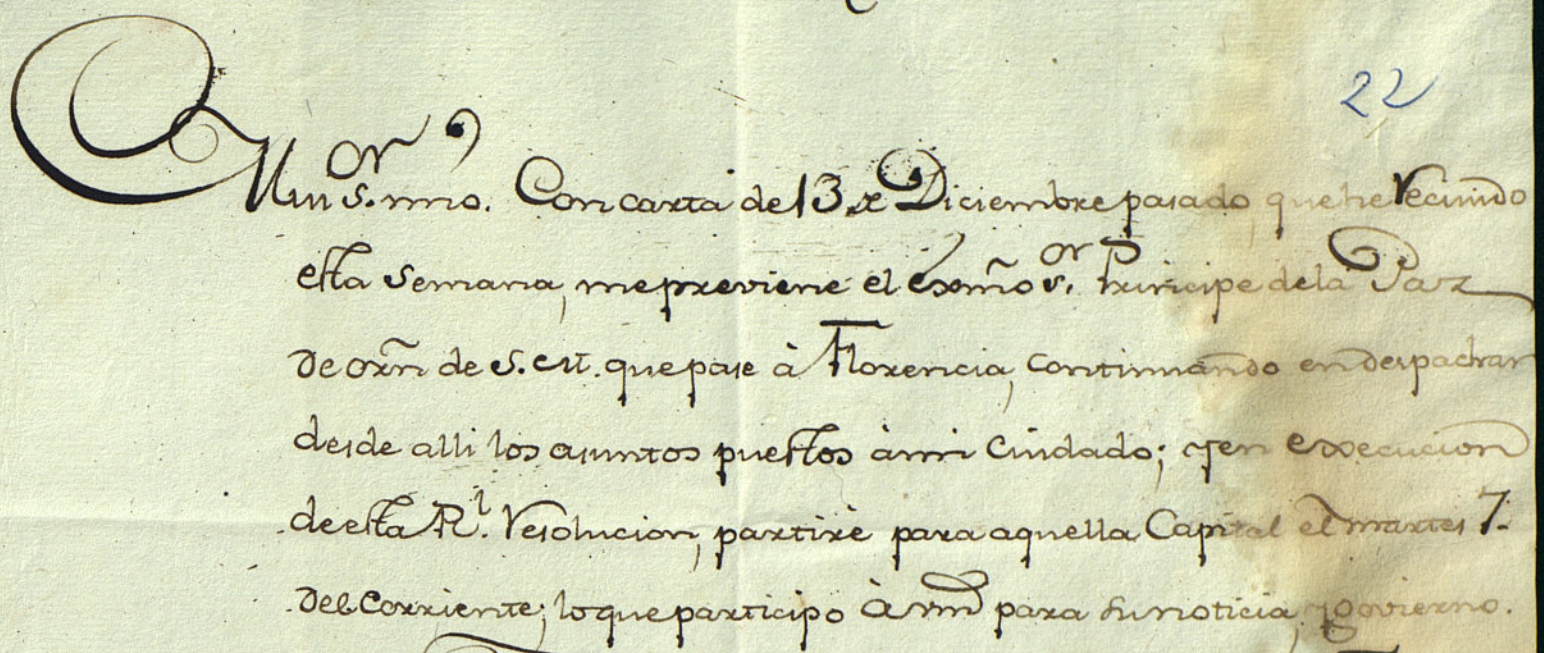 22
Mui S.or mio. Con carta de 13 de Diciembre pasado, que he recivido
esta semana, me previene el Exmo. S.or Principe de la Paz
de orn de S. M. que pase à Florencia, continuando en despachar
desde alli los asuntos puestos à mi cuidado; y en execucion
de esta Rl. resolucion, partirè para aquella Capital el martes 7.
del corriente; lo que participo à vmd para su noticia, y govierno.